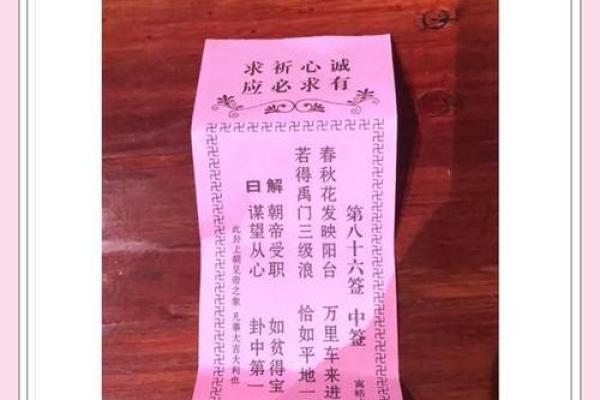 诚心祈求
有求必应
第八十六签 中签
春秋花发映阳台 万里车来进
若得禹门三级浪 恰如平地一
解曰
朝帝受职 如贫得宝
谋望从心 卦中第一
此卦上朝呈帝之象 凡事大吉大利也